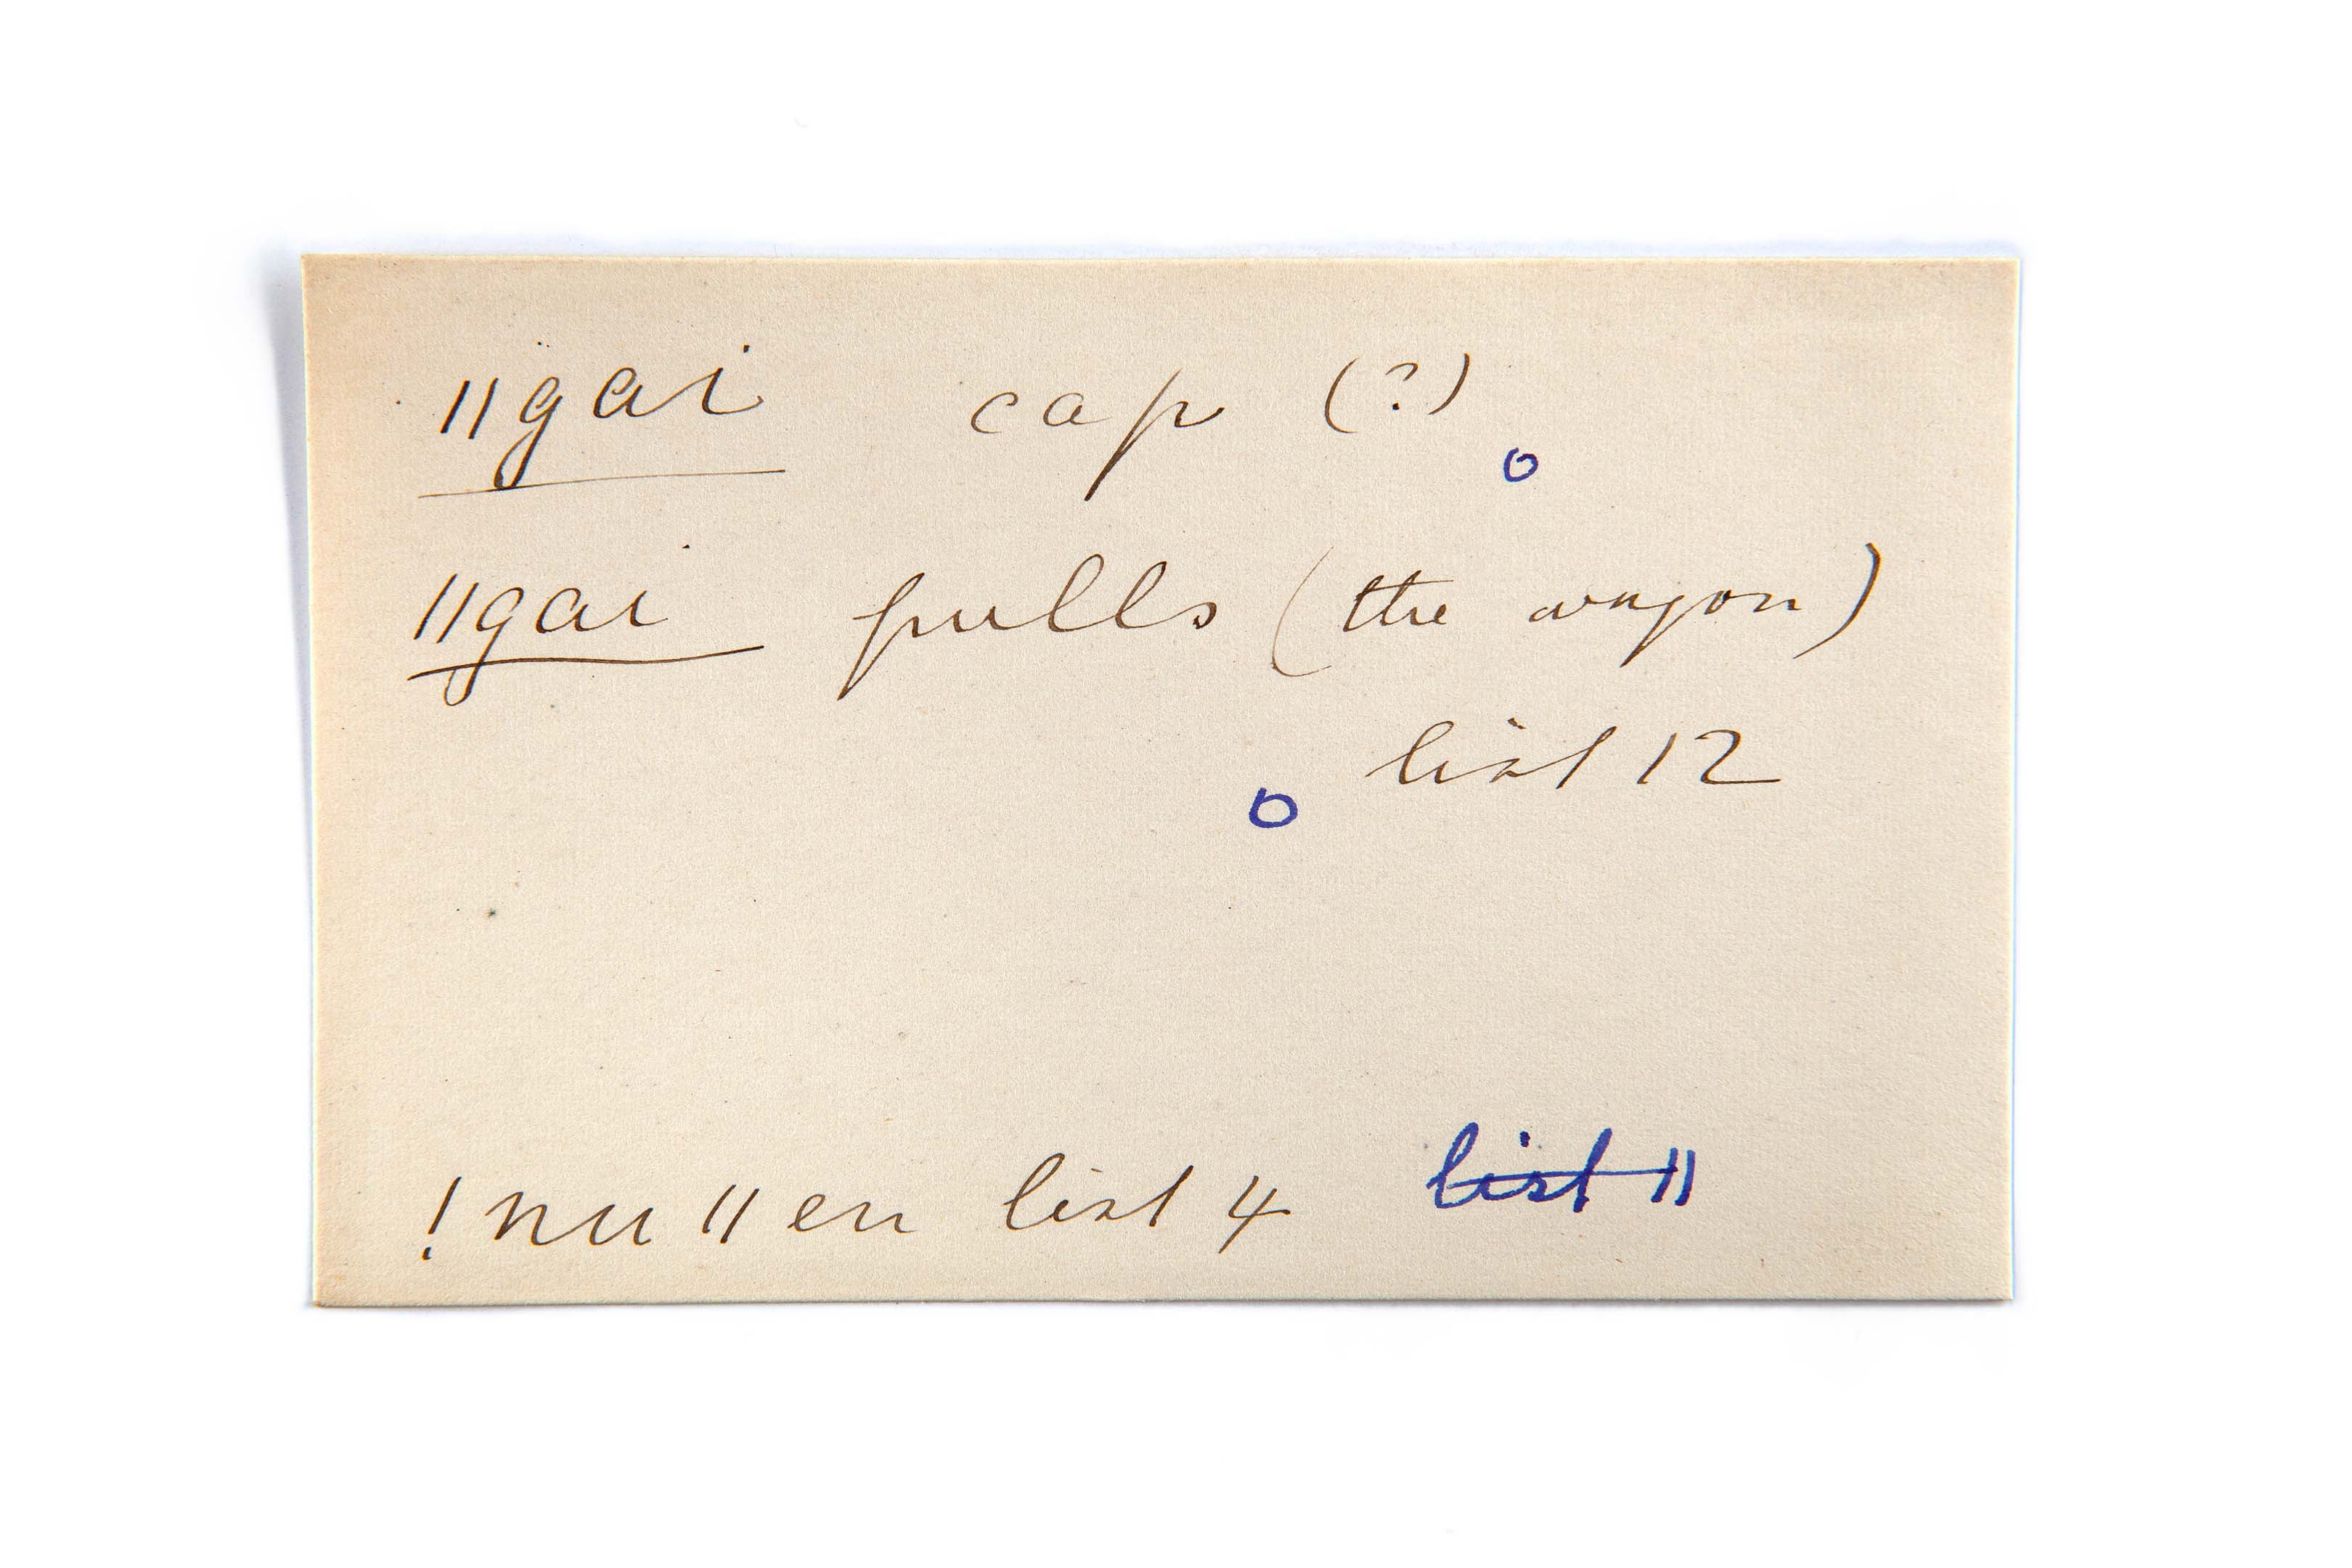 ǁgai cap (?)
o
ǁgai pulls (the wagon)
list 12
o
!nuǁen list 4 list 11